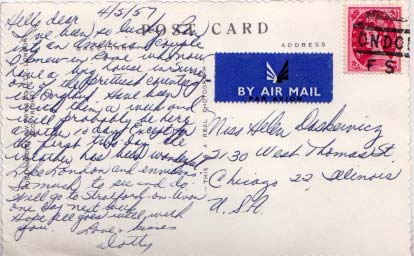 4/5/57
Helly dear
I've been so lucky. Ran
into an American couple
I knew in Rome who now
have a big house in Surrey
one of the prettiest counties
in England. Have been
with them a week and
will probably be here
another 10 days. Except for
the first two days the
weather has been wonderful.
Like London and environs.
So much to see and do.
Will go to Stratford-on-Avon
one day next week.
Hope all goes well with
you.
Love & kisses
Dotty
POST CARD
ADDRESS
BY AIR MAIL
PAR AVION
THIS IS A REAL PHOTOGRAPH
Miss Helen Daskewicz
2130 West Thomas St.
Chicago 22, Illinois
U.S.A.